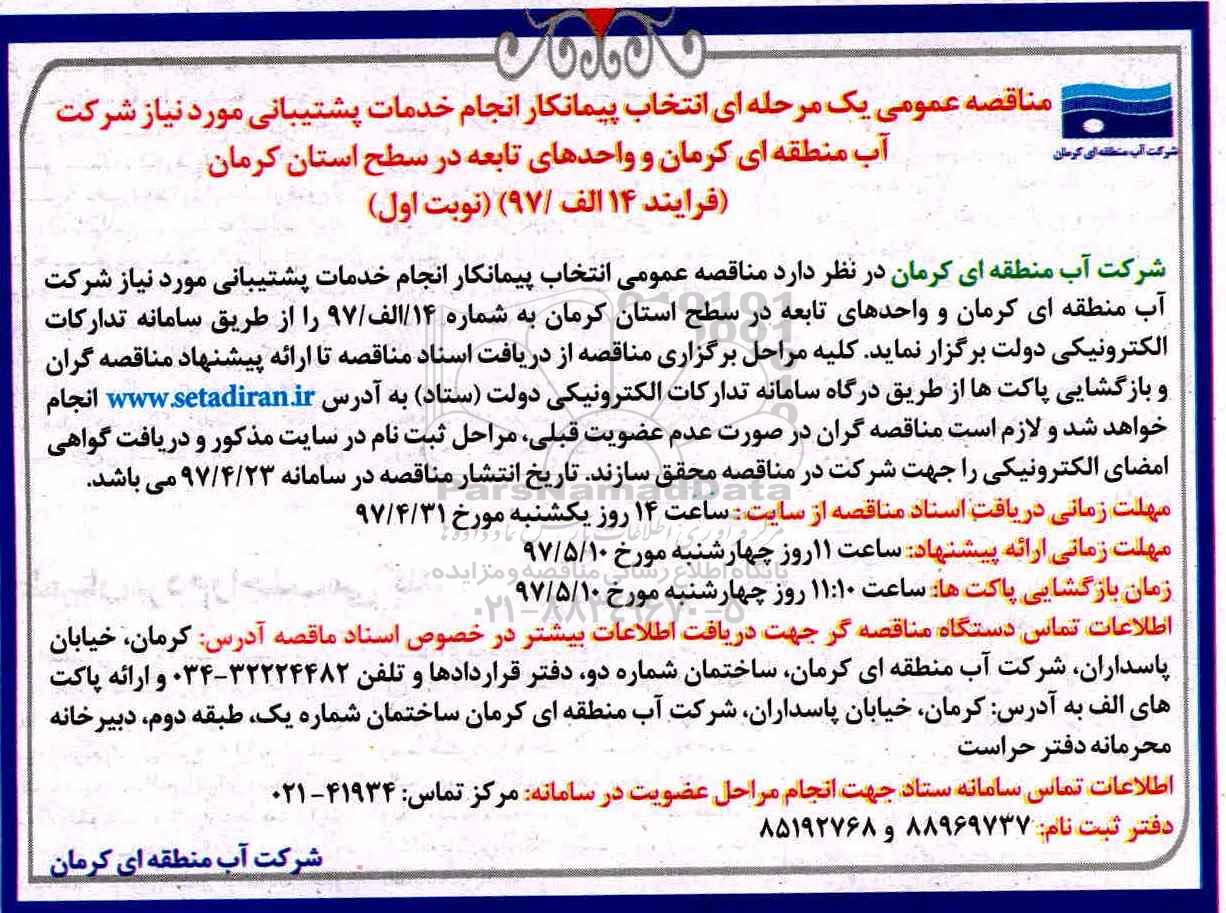 مناقصه عمومی یک مرحله ای انتخاب پیمانکار انجام خدمات پشتیبانی مورد نیاز شرکت
آب منطقه ای کرمان و واحدهای تابعه در سطح استان کرمان
(فرایند ۱۴ الف /۹۷) (نوبت اول)
شرکت آب منطقه ای کرمان
شرکت آب منطقه ای کرمان در نظر دارد مناقصه عمومی انتخاب پیمانکار انجام خدمات پشتیبانی مورد نیاز شرکت
آب منطقه ای کرمان و واحدهای تابعه در سطح استان کرمان به شماره ۱۴/الف/۹۷ را از طریق سامانه تدارکات
الکترونیکی دولت برگزار نماید. کلیه مراحل برگزاری مناقصه از دریافت اسناد مناقصه تا ارائه پیشنهاد مناقصه گران
و بازگشایی پاکت ها از طریق درگاه سامانه تدارکات الکترونیکی دولت (ستاد) به آدرس www.setadiran.ir انجام
خواهد شد و لازم است مناقصه گران در صورت عدم عضویت قبلی، مراحل ثبت نام در سایت مذکور و دریافت گواهی
امضای الکترونیکی را جهت شرکت در مناقصه محقق سازند. تاریخ انتشار مناقصه در سامانه ۹۷/۴/۲۳ می باشد.
ParsNamadData
مهلت زمانی دریافت اسناد مناقصه از سایت: ساعت ۱۴ روز یکشنبه مورخ ۹۷/۴/۳۱
مهلت زمانی ارائه پیشنهاد: ساعت ۱۱روز چهارشنبه مورخ ۹۷/۵/۱۰
پایگاه اطلاع رسانی مناقصه و مزایده
زمان بازگشایی پاکت ها: ساعت ۱۱:۱۰ روز چهارشنبه مورخ ۹۷/۵/۱۰
۰۲۱-۸۸۳۴۹۶۷۰-۵
اطلاعات تماس دستگاه مناقصه گر جهت دریافت اطلاعات بیشتر در خصوص اسناد ماقصه آدرس: کرمان، خیابان
پاسداران، شرکت آب منطقه ای کرمان، ساختمان شماره دو، دفتر قراردادها و تلفن ۳۲۲۲۴۴۸۲-۰۳۴ و ارائه پاکت
های الف به آدرس: کرمان، خیابان پاسداران، شرکت آب منطقه ای کرمان ساختمان شماره یک، طبقه دوم، دبیرخانه
محرمانه دفتر حراست
اطلاعات تماس سامانه ستاد جهت انجام مراحل عضویت در سامانه: مرکز تماس: ۴۱۹۳۴-۰۲۱
دفتر ثبت نام: ۸۸۹۶۹۷۳۷ و ۸۵۱۹۲۷۶۸
شرکت آب منطقه ای کرمان